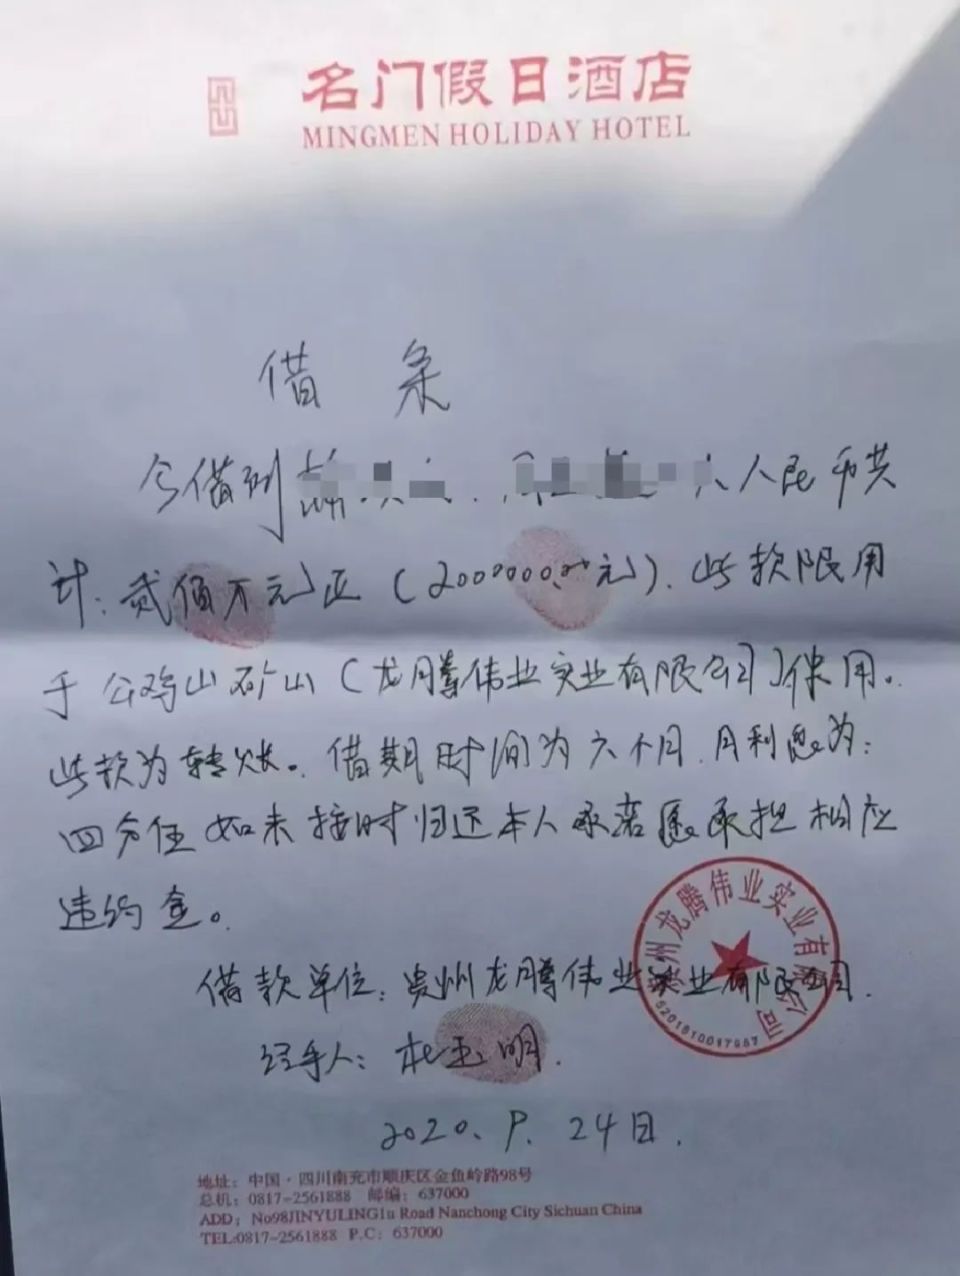 名门假日酒店
MINGMEN HOLIDAY HOTEL
借条
今借到 人民币共
计：贰佰万元正（2000000.00元）．此款限用
于公鸡山矿山（龙腾伟业实业有限公司）使用。
此款为转账。借期时间为六个月．月利息为：
四分任如未按时归还本人承诺愿承担相应
违约金。
借款单位：贵州龙腾伟业实业有限公司．
贵州龙腾伟业实业有限公司
经手人：杜玉明．
2020．9．24日．
地址：中国·四川南充市顺庆区金鱼岭路98号
总机：0817-2561888 邮编：637000
ADD：No98JINYULING1u Road Nanchong City Sichuan China
TEL:0817-2561888 P.C：637000